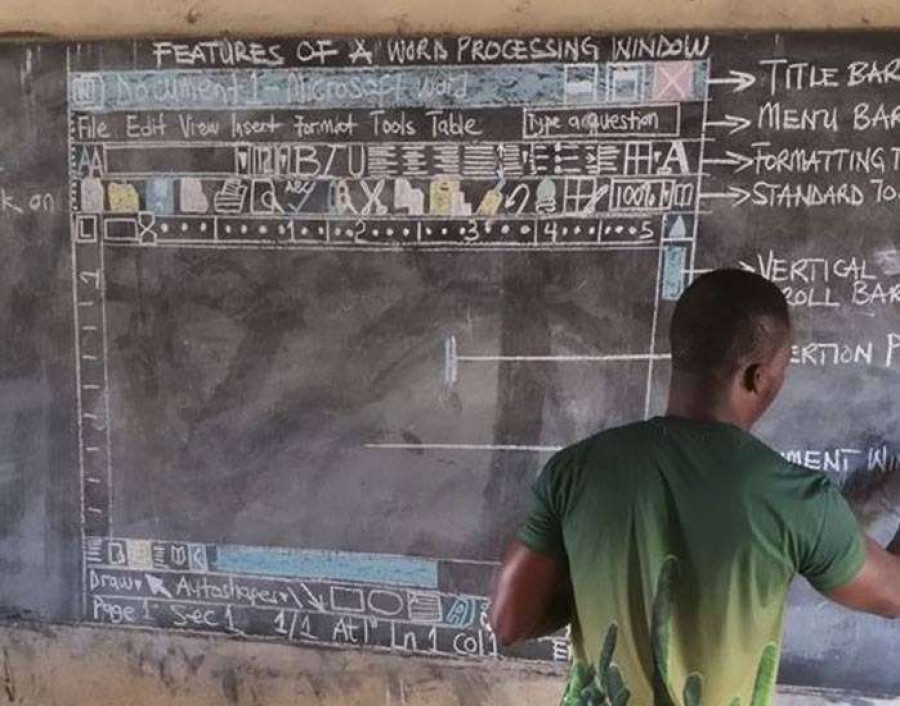 FEATURES OF A WORD PROCESSING WINDOW
W Document 1 - Microsoft Word
TITLE BAR
File Edit View Insert Format Tools Table Type a question
MENU BAR
AA 12 B I U A
FORMATTING T
k on
ABC 100%
STANDARD TO
L 1 2 3 4 5
1
VERTICAL
ROLL BAR
ERTION P
MENT WI
Draw Autoshapes
Page 1 Sec 1 1/1 At 1" Ln 1 Col 1